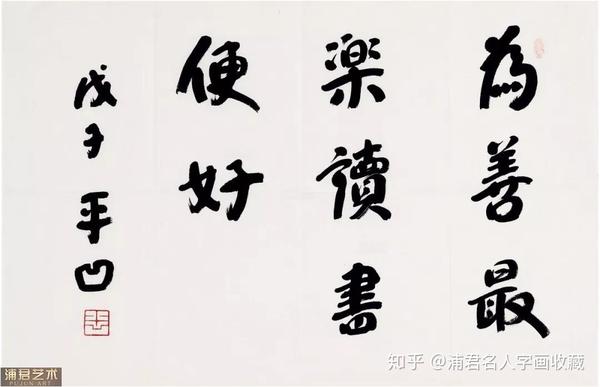 為善最
楽讀書
便好
戊子 平凹
浦君艺术
PUJUN ART
知乎 @浦君名人字画收藏